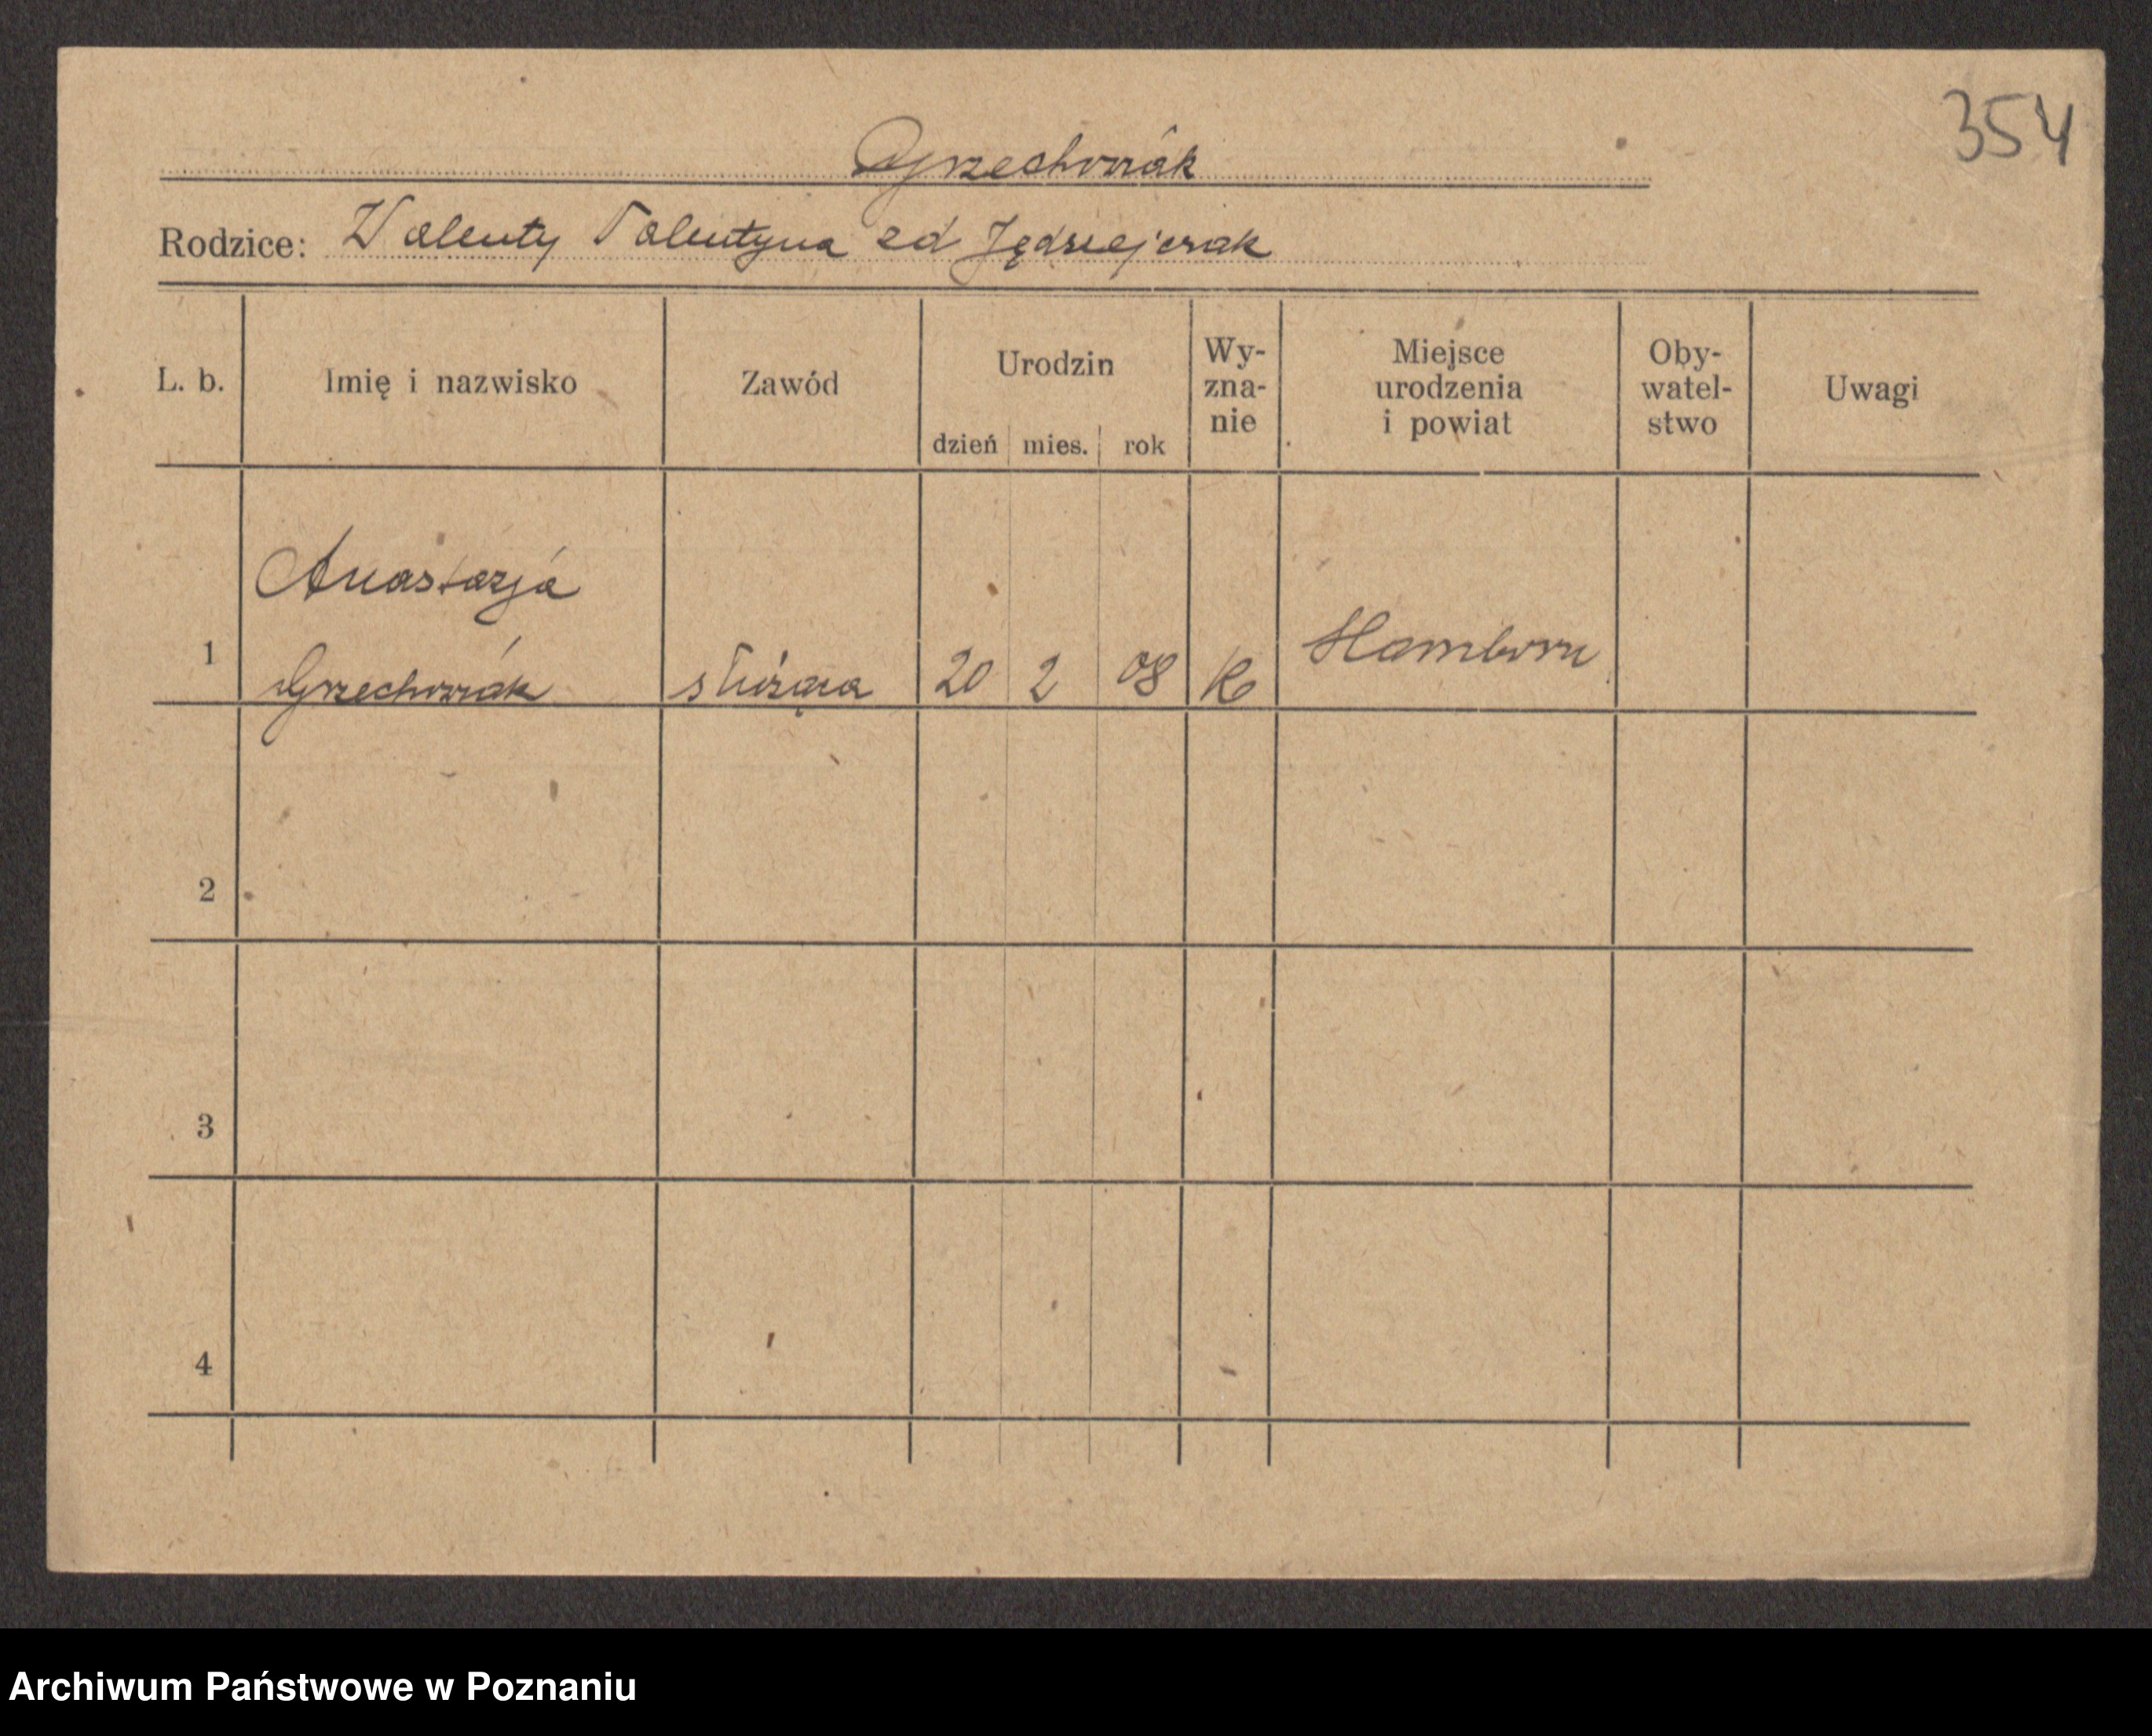 354
Grzechowiak
Rodzice: Walenty Walentyna zd Jędrzejczak
L. b. Imię i nazwisko Zawód Urodzin dzień mies. rok Wy-zna-nie Miejsce urodzenia i powiat Oby-watel-stwo Uwagi
Anastazja
1 Grzechowiak służąca 20 2 08 Hamborn
2
3
4
Archiwum Państwowe w Poznaniu